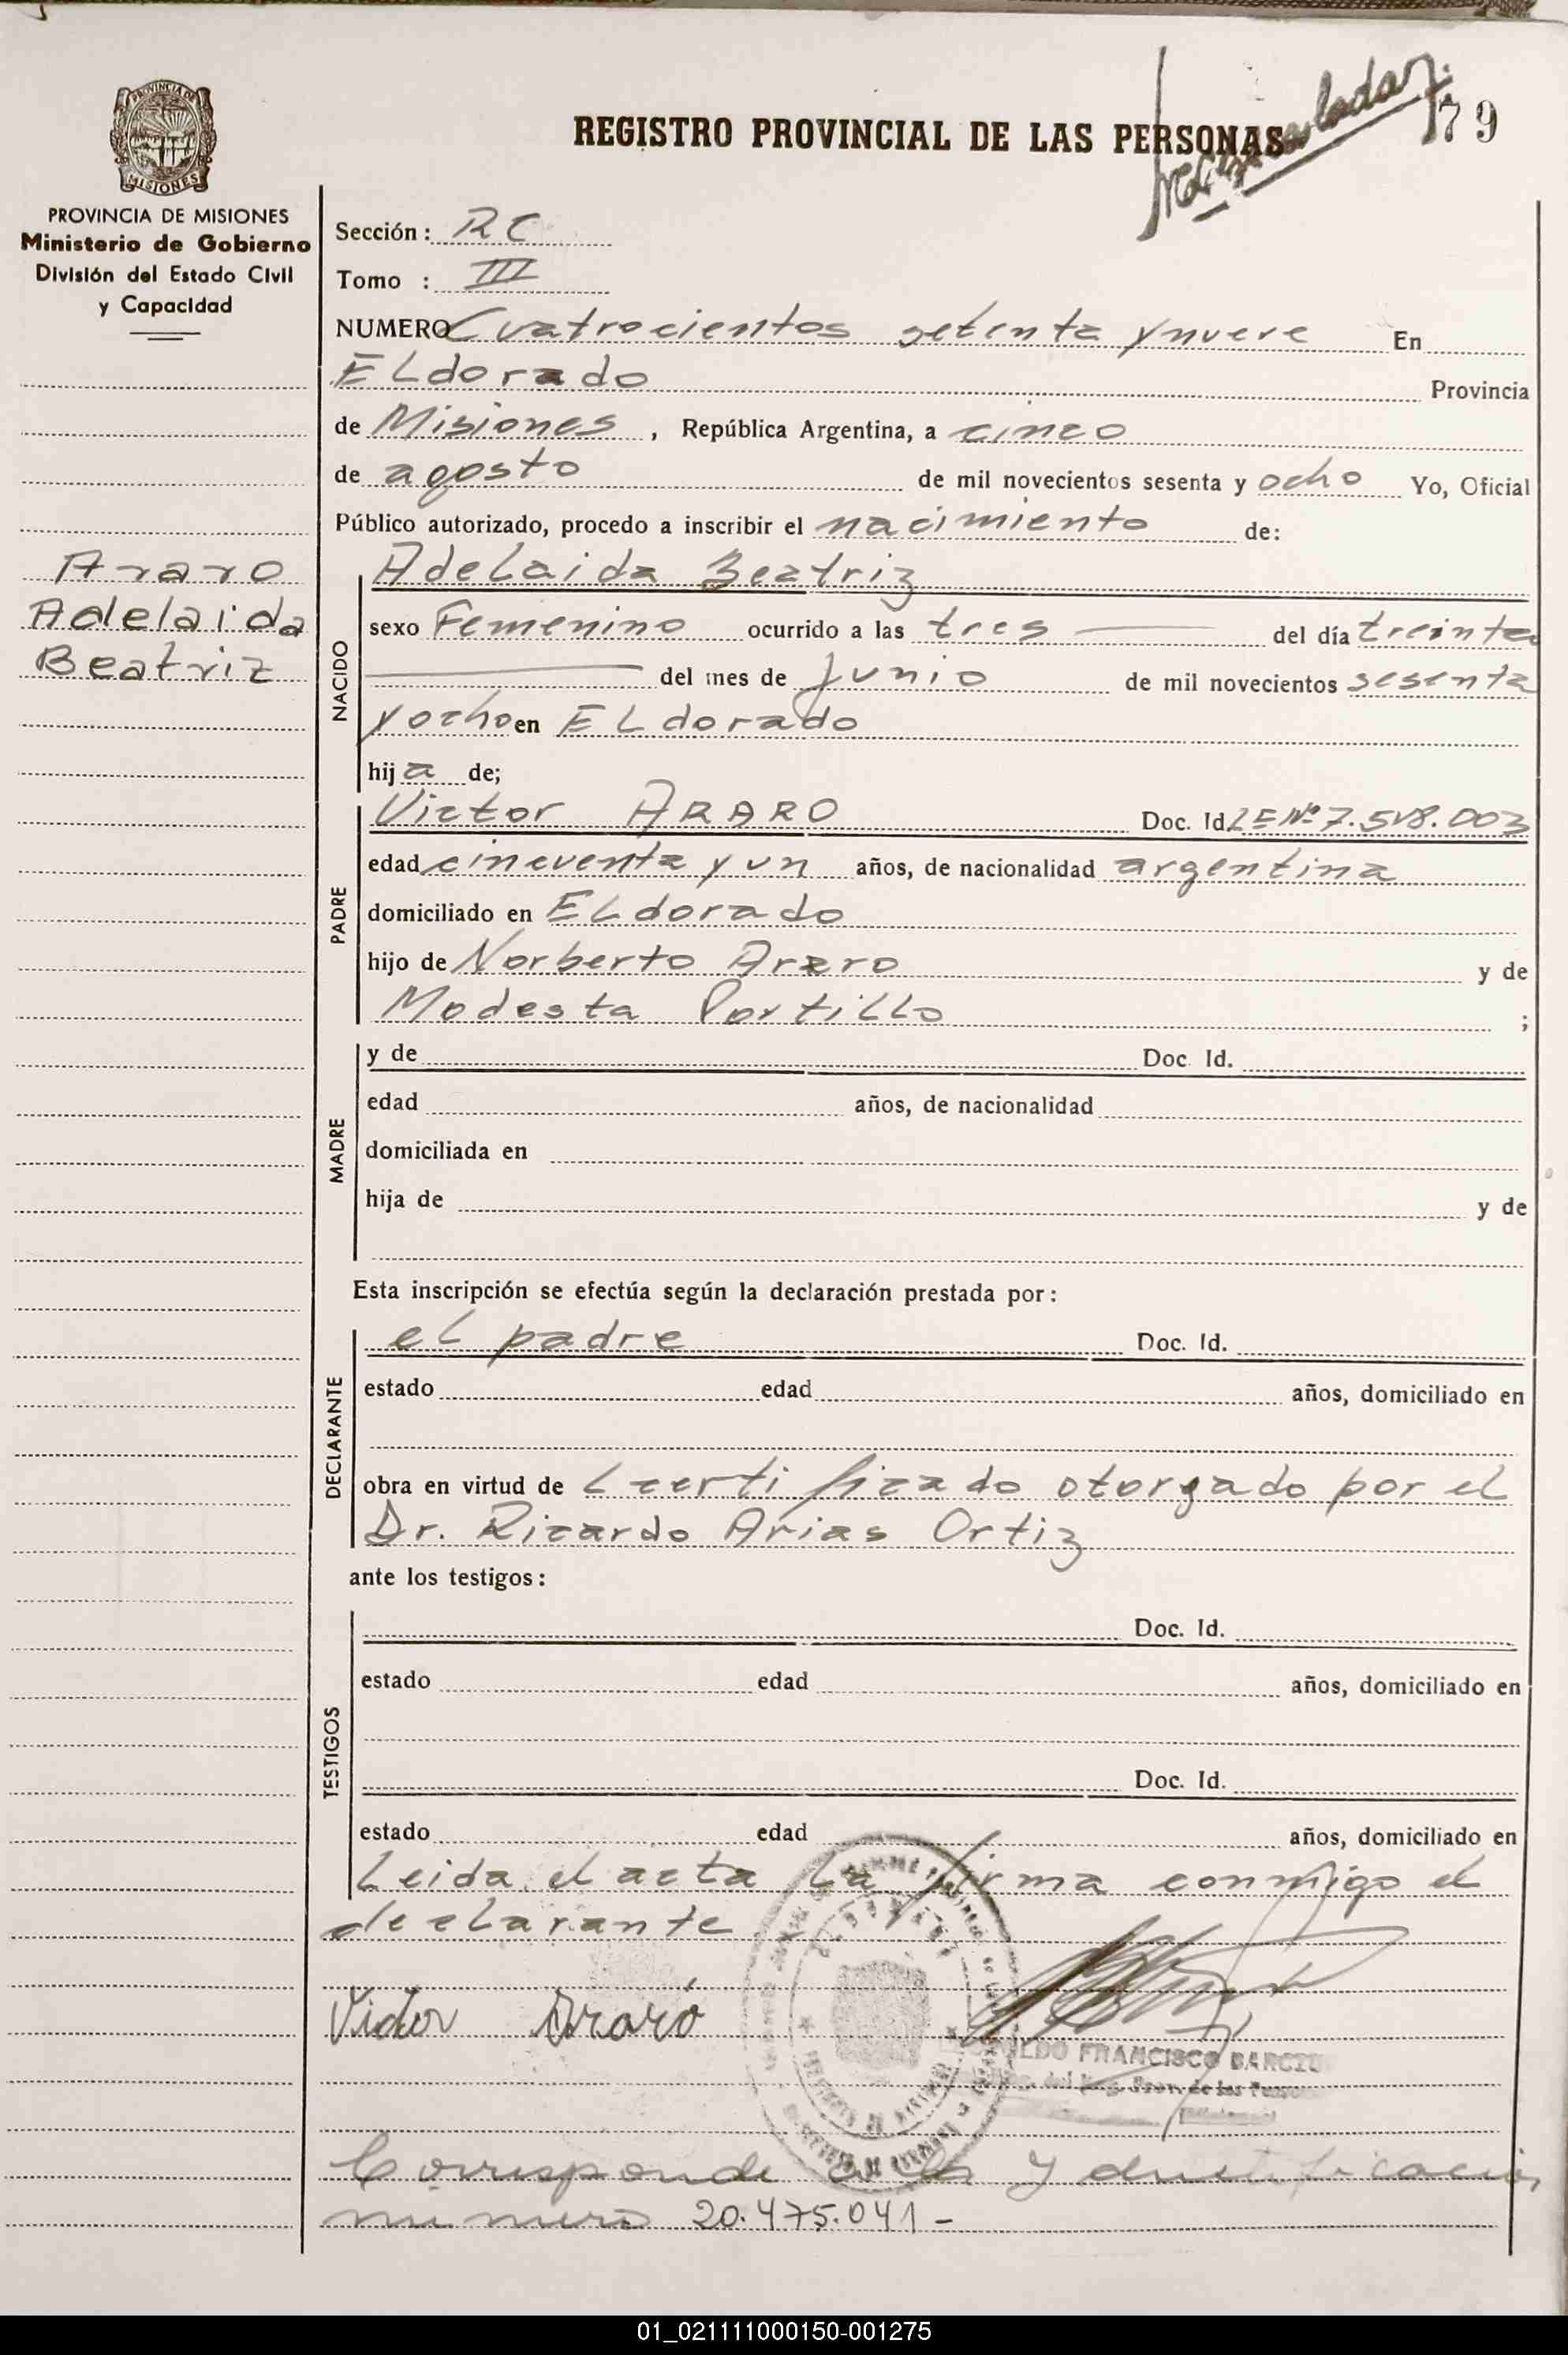 REGISTRO PROVINCIAL DE LAS PERSONAS
79
PROVINCIA DE MISIONES
PROVINCIA DE MISIONES
Ministerio de Gobierno
División del Estado Civil
y Capacidad
Araro
Adelaida
Beatriz
Sección: RC
Tomo : III
NUMERO Cuatrocientos setenta y nueve En
ELdorado Provincia
de Misiones, República Argentina, a cinco
de agosto de mil novecientos sesenta y ocho Yo, Oficial
Público autorizado, procedo a inscribir el nacimiento de:
NACIDO
Adelaida Beatriz
sexo Femenino ocurrido a las tres — del día treinta
— del mes de Junio de mil novecientos sesenta
y ocho en ELdorado
hija de;
PADRE
Victor ARARO Doc. Id. LE Nº 7.518.003
edad cincuenta y un años, de nacionalidad argentina
domiciliado en ELdorado
hijo de Norberto Araro y de
Modesta Portillo ;
MADRE
y de Doc. Id.
edad años, de nacionalidad
domiciliada en
hija de y de
Esta inscripción se efectúa según la declaración prestada por:
DECLARANTE
el padre Doc. Id.
estado edad años, domiciliado en
obra en virtud de certificado otorgado por el
Dr. Ricardo Arias Ortiz
ante los testigos:
TESTIGOS
Doc. Id.
estado edad años, domiciliado en
Doc. Id.
estado edad años, domiciliado en
Leida el acta la firma conmigo el
declarante
Victor Araró
FRANCISCO
Corresponde a y
numero 20.475.041-
01_021111000150-001275